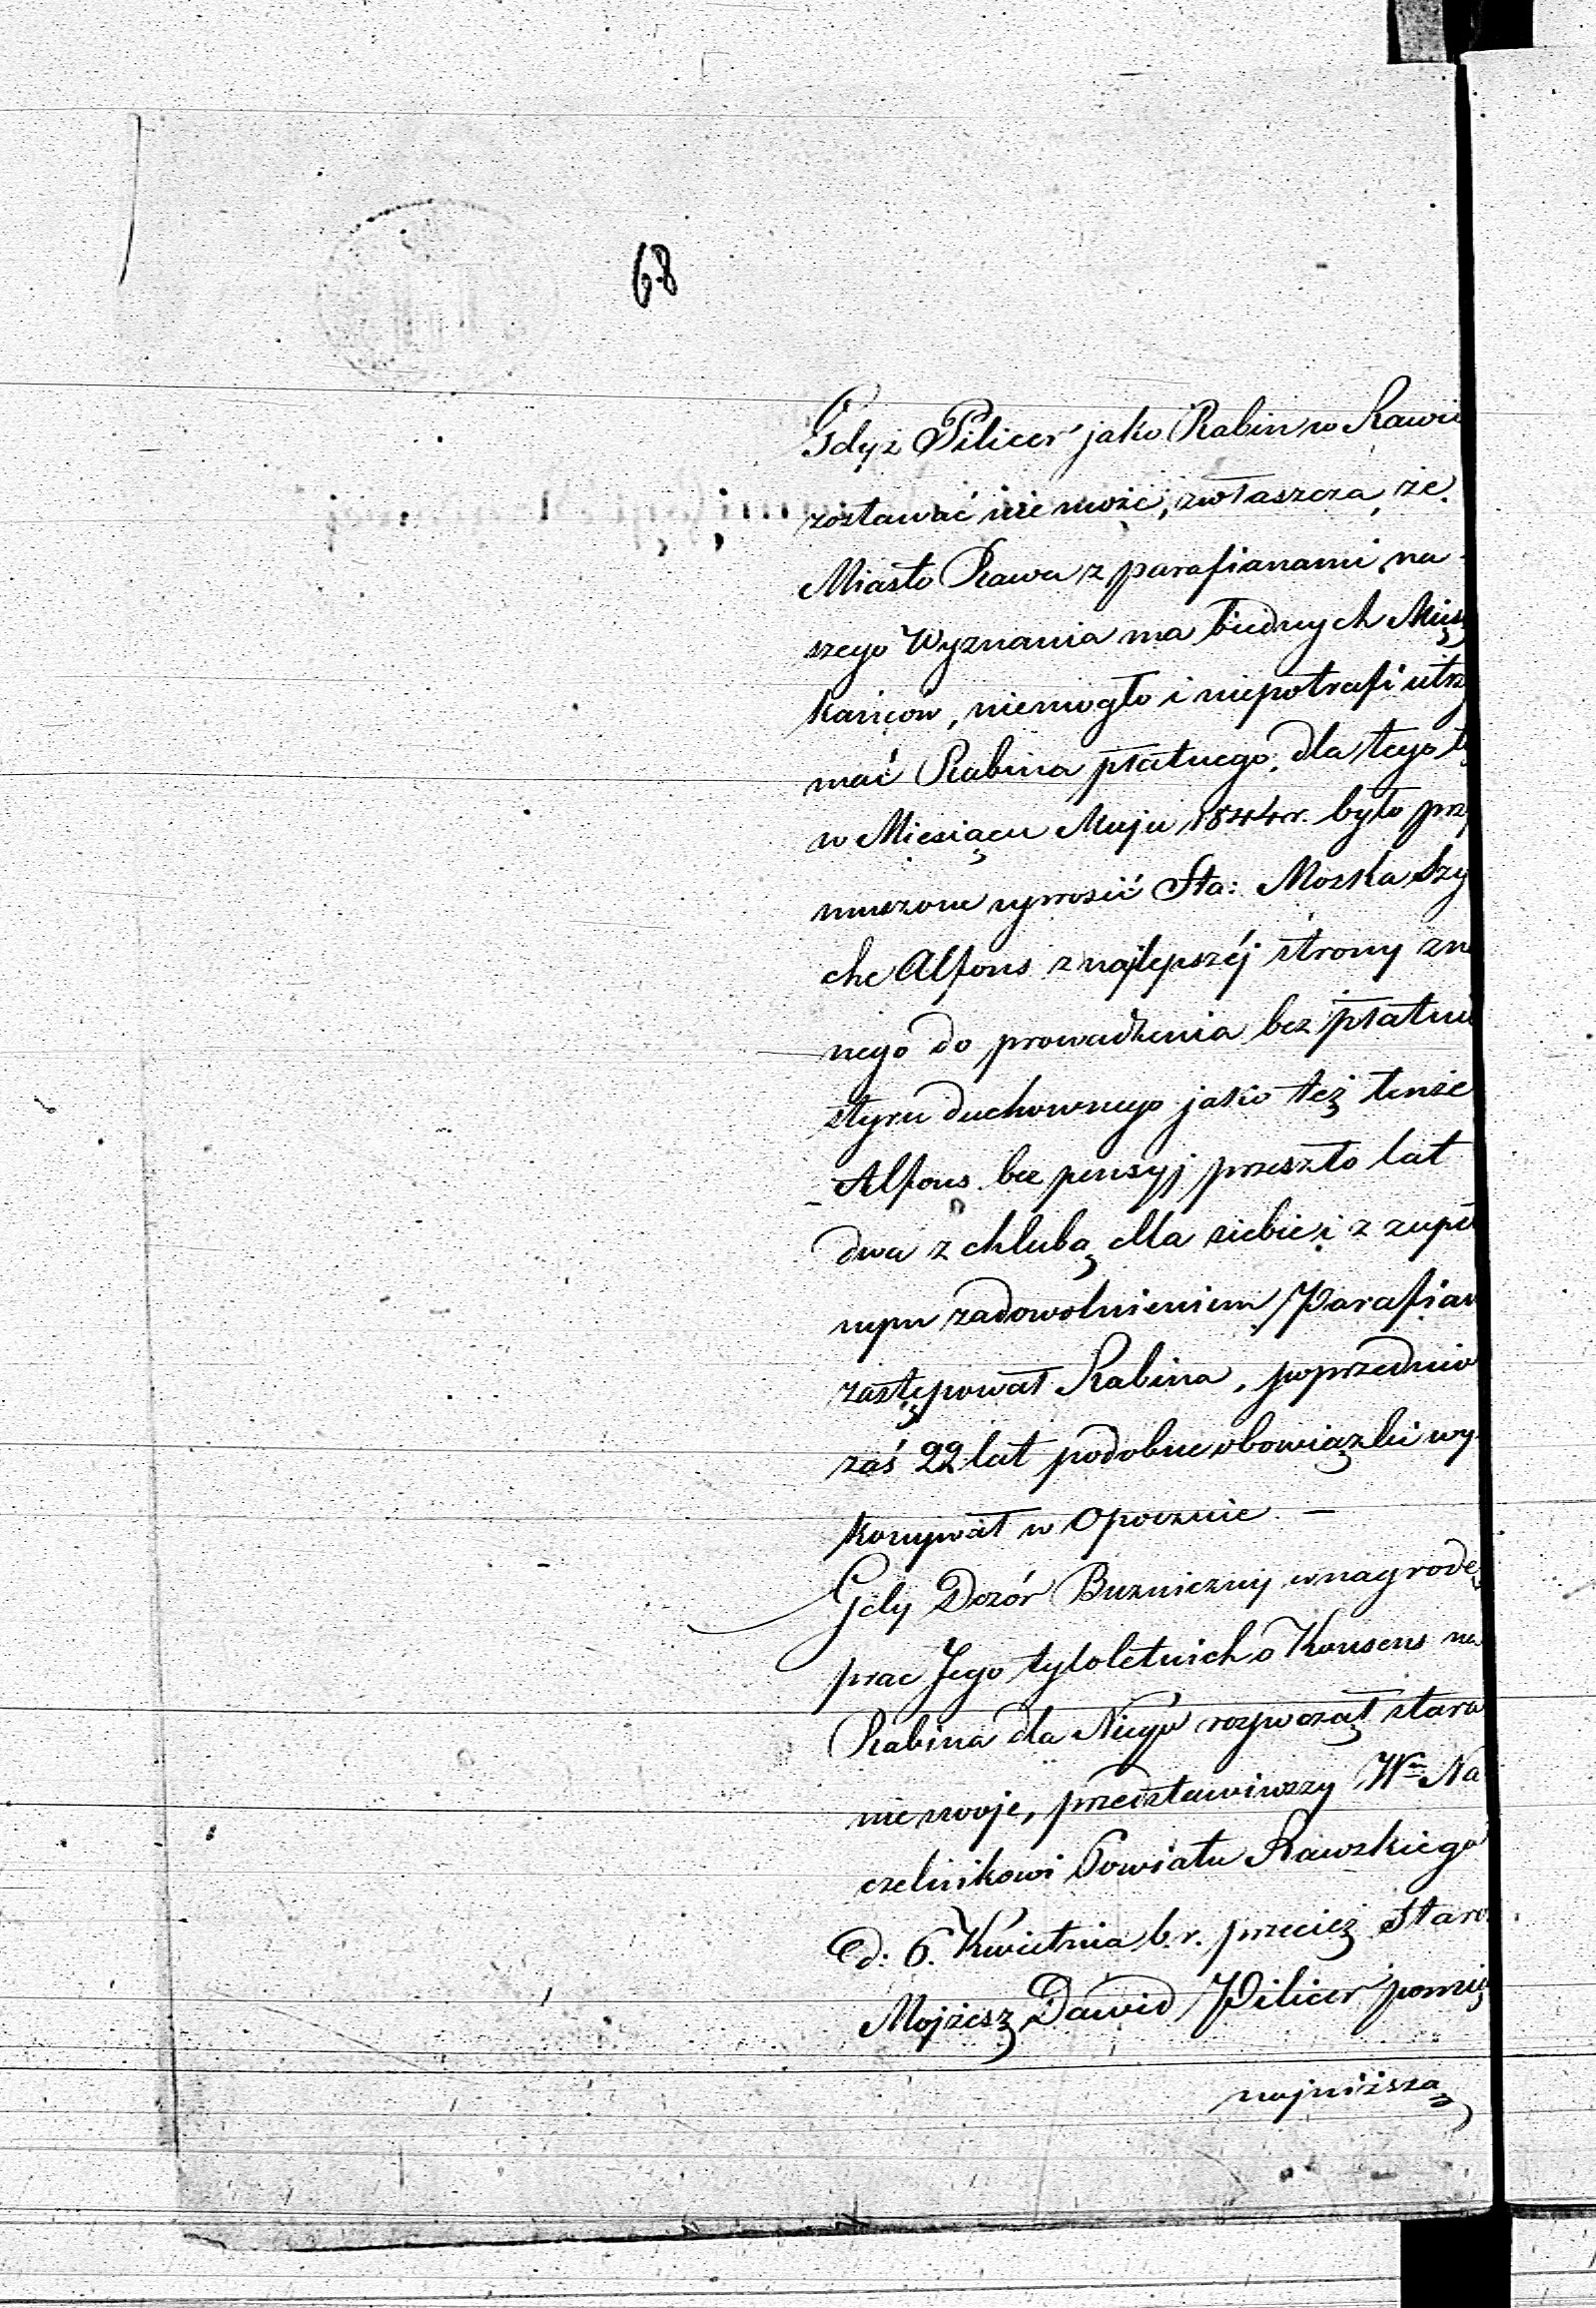 68
Gdyż Pilicer jako Rabin w Rawie
zostawać nie może, zwłaszcza, że
Miasto Rawa z parafianami na-
szego Wyznania ma biednych Miesz
kańców, niemogło i niepotrafi utrzy
mać Rabina płatnego, dla tego
w Miesiącu Maju 1844 r. było przy
muszone uprosić Sta: Moska Szy
che Alfons z najlepszéj strony zna
nego do prowadzenia bez płatnie
styru duchownego jako też tenże
Alfons bez pensyj przeszło lat
dwa z chlubą dla siebie i z zupeł
nym zadowolnieniem Parafian
zastępował Rabina, poprzednio
zaś 22 lat podobne obowiązki wy-
konywał w Opocznie. —
Gdy Dozór Bużniczny w nagrodę
prac Jego tyloletnich o Konsens na
Rabina dla Niego rozpoczął stara
nie swoje, przedstawiwszy Wmu Na
czelnikowi Powiatu Rawskiego
d: 6. Kwietnia b. r. przecież Staro.
Mojżesz Dawid Pilicer pomię
najniższą